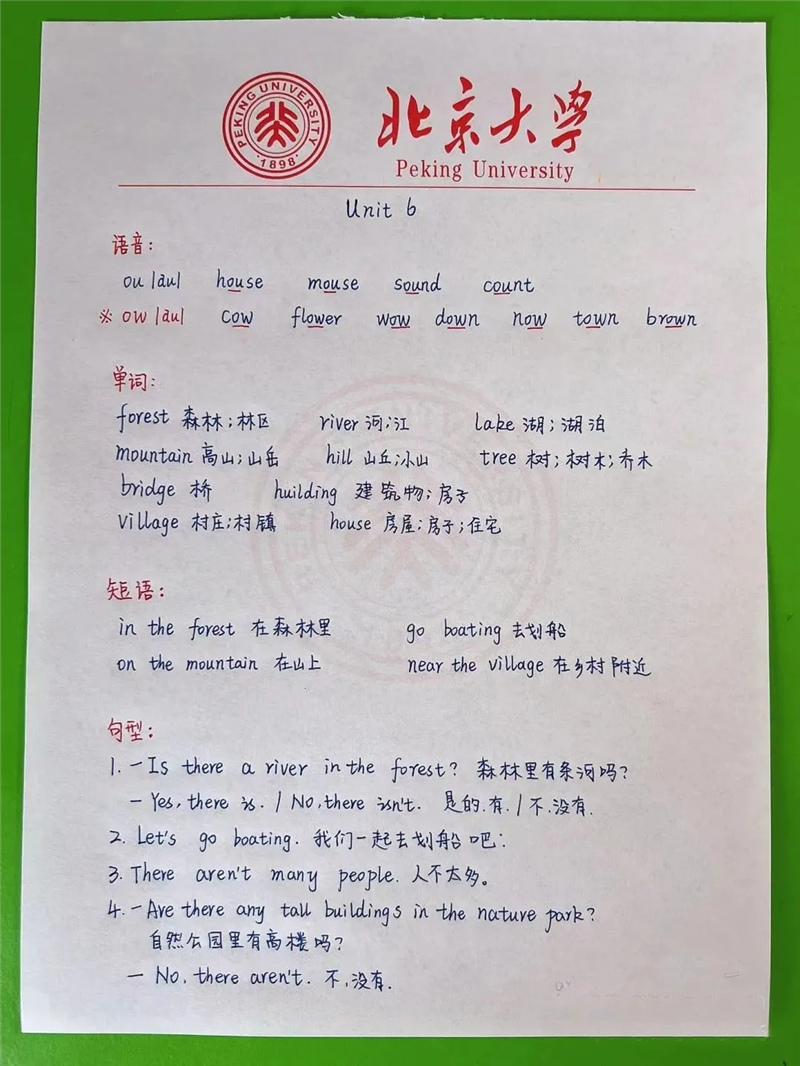 PEKING UNIVERSITY
·1898·
北京大学
Peking University
Unit 6
语音:
ou /au/ house mouse sound count
※ ow /au/ cow flower wow down now town brown
单词:
forest 森林;林区 river 河;江 lake 湖;湖泊
mountain 高山;山岳 hill 山丘;小山 tree 树;树木;乔木
bridge 桥 huilding 建筑物;房子
village 村庄;村镇 house 房屋;房子;住宅
短语:
in the forest 在森林里 go boating 去划船
on the mountain 在山上 near the village 在乡村附近
句型:
1. —Is there a river in the forest? 森林里有条河吗?
— Yes, there is. / No, there isn't. 是的.有. / 不,没有.
2. Let's go boating. 我们一起去划船吧:
3. There aren't many people. 人不太多。
4. —Are there any tall buildings in the nature park?
自然公园里有高楼吗?
— No, there aren't. 不,没有.